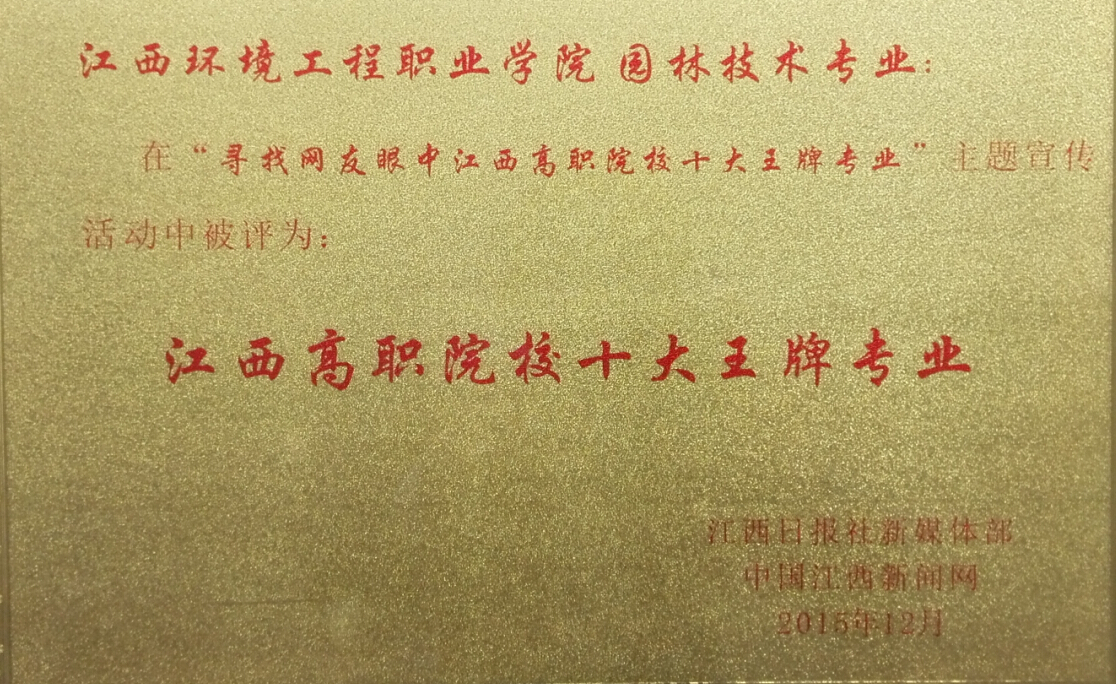 江西环境工程职业学院 园林技术专业：
在“寻找网友眼中江西高职院校十大王牌专业”主题宣传
活动中被评为：
江西高职院校十大王牌专业
江西日报社新媒体部
中国江西新闻网
2015年12月